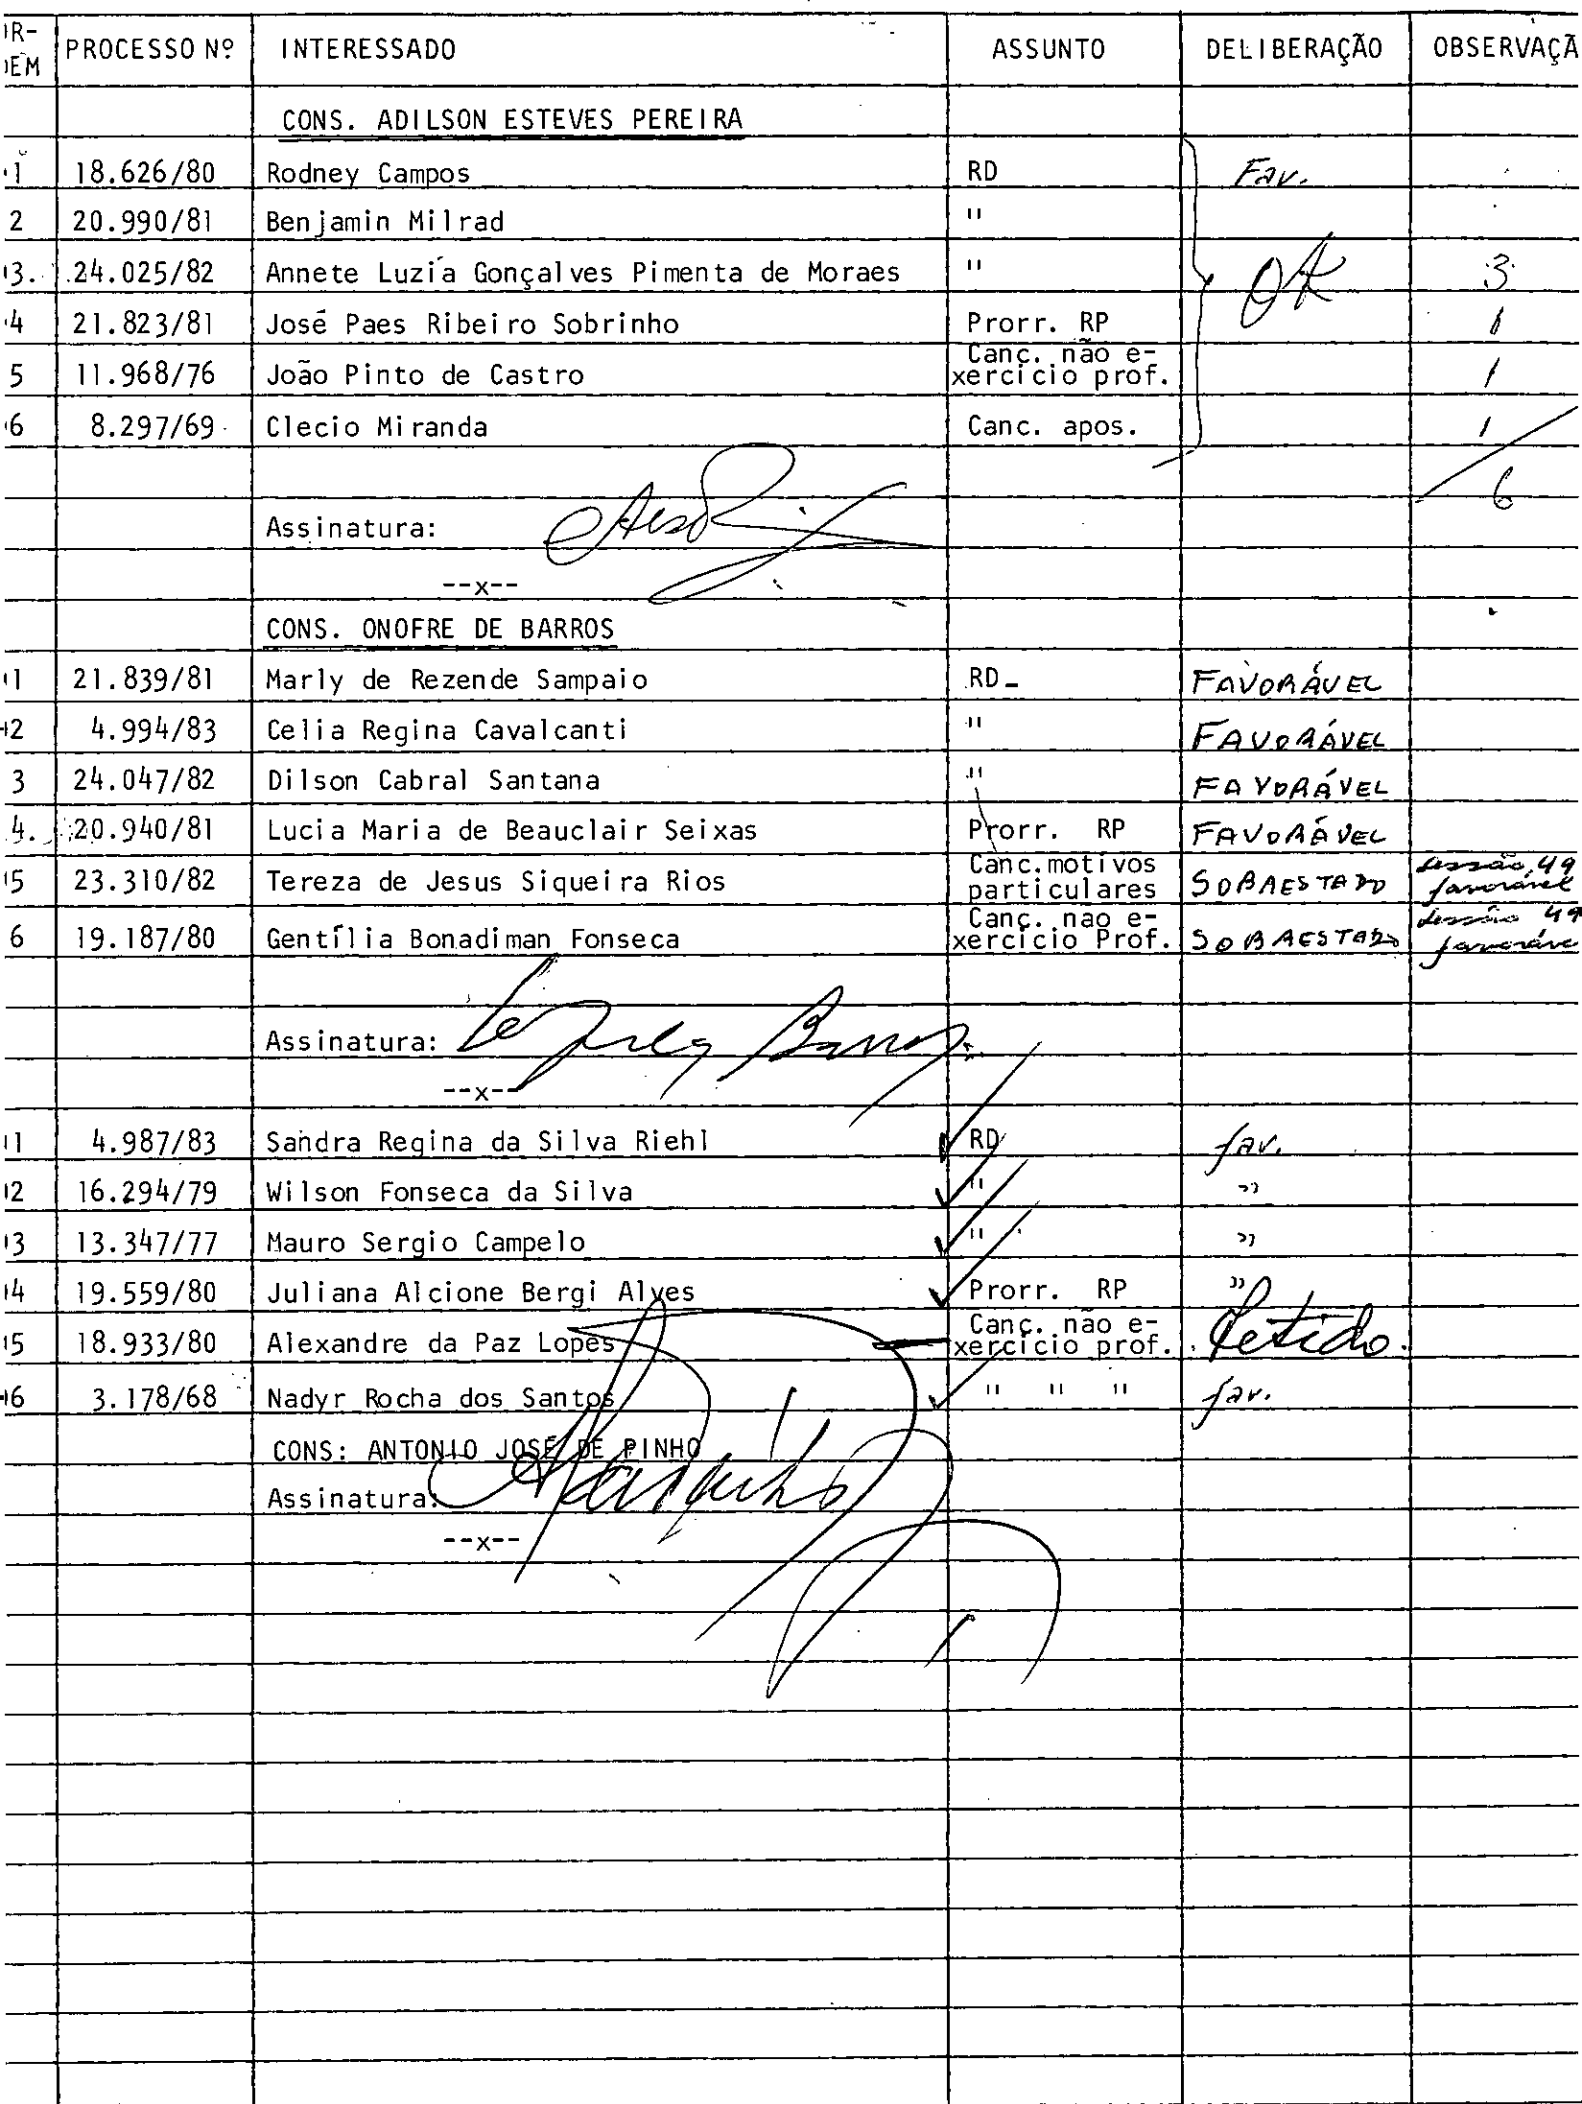 OR-
DEM PROCESSO Nº INTERESSADO ASSUNTO DELIBERAÇÃO OBSERVAÇÃ
CONS. ADILSON ESTEVES PEREIRA
1 18.626/80 Rodney Campos RD Fav.
2 20.990/81 Benjamin Milrad "
3. 24.025/82 Annete Luzía Gonçalves Pimenta de Moraes " OK 3
4 21.823/81 José Paes Ribeiro Sobrinho Prorr. RP 1
5 11.968/76 João Pinto de Castro Canc. não e-
xercício prof. 1
6 8.297/69 Clecio Miranda Canc. apos. 1
6
Assinatura:
--x--
CONS. ONOFRE DE BARROS
1 21.839/81 Marly de Rezende Sampaio RD FAVORÁVEL
2 4.994/83 Celia Regina Cavalcanti " FAVORÁVEL
3 24.047/82 Dilson Cabral Santana " FAVORÁVEL
4. 20.940/81 Lucia Maria de Beauclair Seixas Prorr. RP FAVORÁVEL
5 23.310/82 Tereza de Jesus Siqueira Rios Canc.motivos
particulares SOBRESTADO sessão 49
favorável
6 19.187/80 Gentília Bonadiman Fonseca Canc. nao e-
xercício Prof. SOBRESTADO sessão 49
favoráve
Assinatura:
--x--
1 4.987/83 Sandra Regina da Silva Riehl RD fav.
2 16.294/79 Wilson Fonseca da Silva " "
3 13.347/77 Mauro Sergio Campelo " "
4 19.559/80 Juliana Alcione Bergi Alves Prorr. RP "
5 18.933/80 Alexandre da Paz Lopes Canc. não e-
xercício prof. Retido.
6 3.178/68 Nadyr Rocha dos Santos " " " fav.
CONS: ANTONIO JOSÉ DE PINHO
Assinatura:
--x--